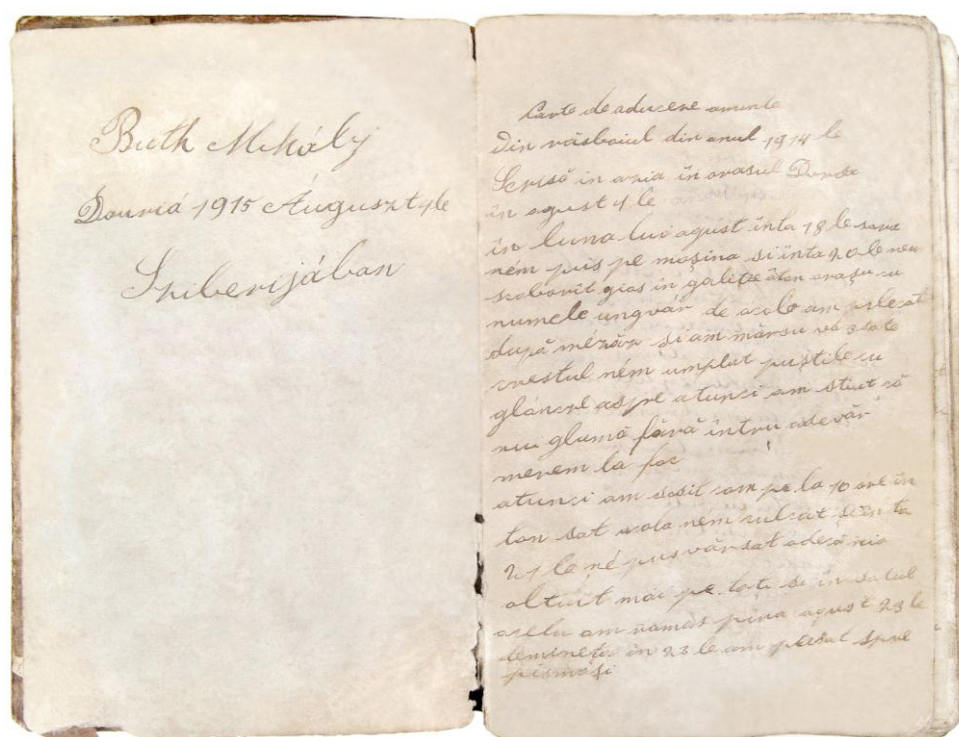 Buth Mihály
Douriá 1915 Áuguszt 4 le
Sziberijában
Carte de aducere aminte
Din răsboiul din anul 1914 le
Scrisă in azia in orasul Douria
in agust 4 le
in luna lui agust inta 18 le sara
ném pus pe mașina si inta 20 le neu
scoborit gios in galiție āton orașu cu
numele ungvár de acolo am plecat
după mézăz si am mărsu vo 3 sate
crestul ném umplat puștile cu
glonțe aspre atunci am stiut că
nui glumă fără intru adevăr
merem la foc
atunci am sosit cam pe la 10 are in
ton sat acola ném culcat si in ta
21 le né pus vărsat adecă nio
oltuit mai pe toti si in satul
acela am ramas pina agust 23 le
demineța in 23 le am plecat spre
pismași